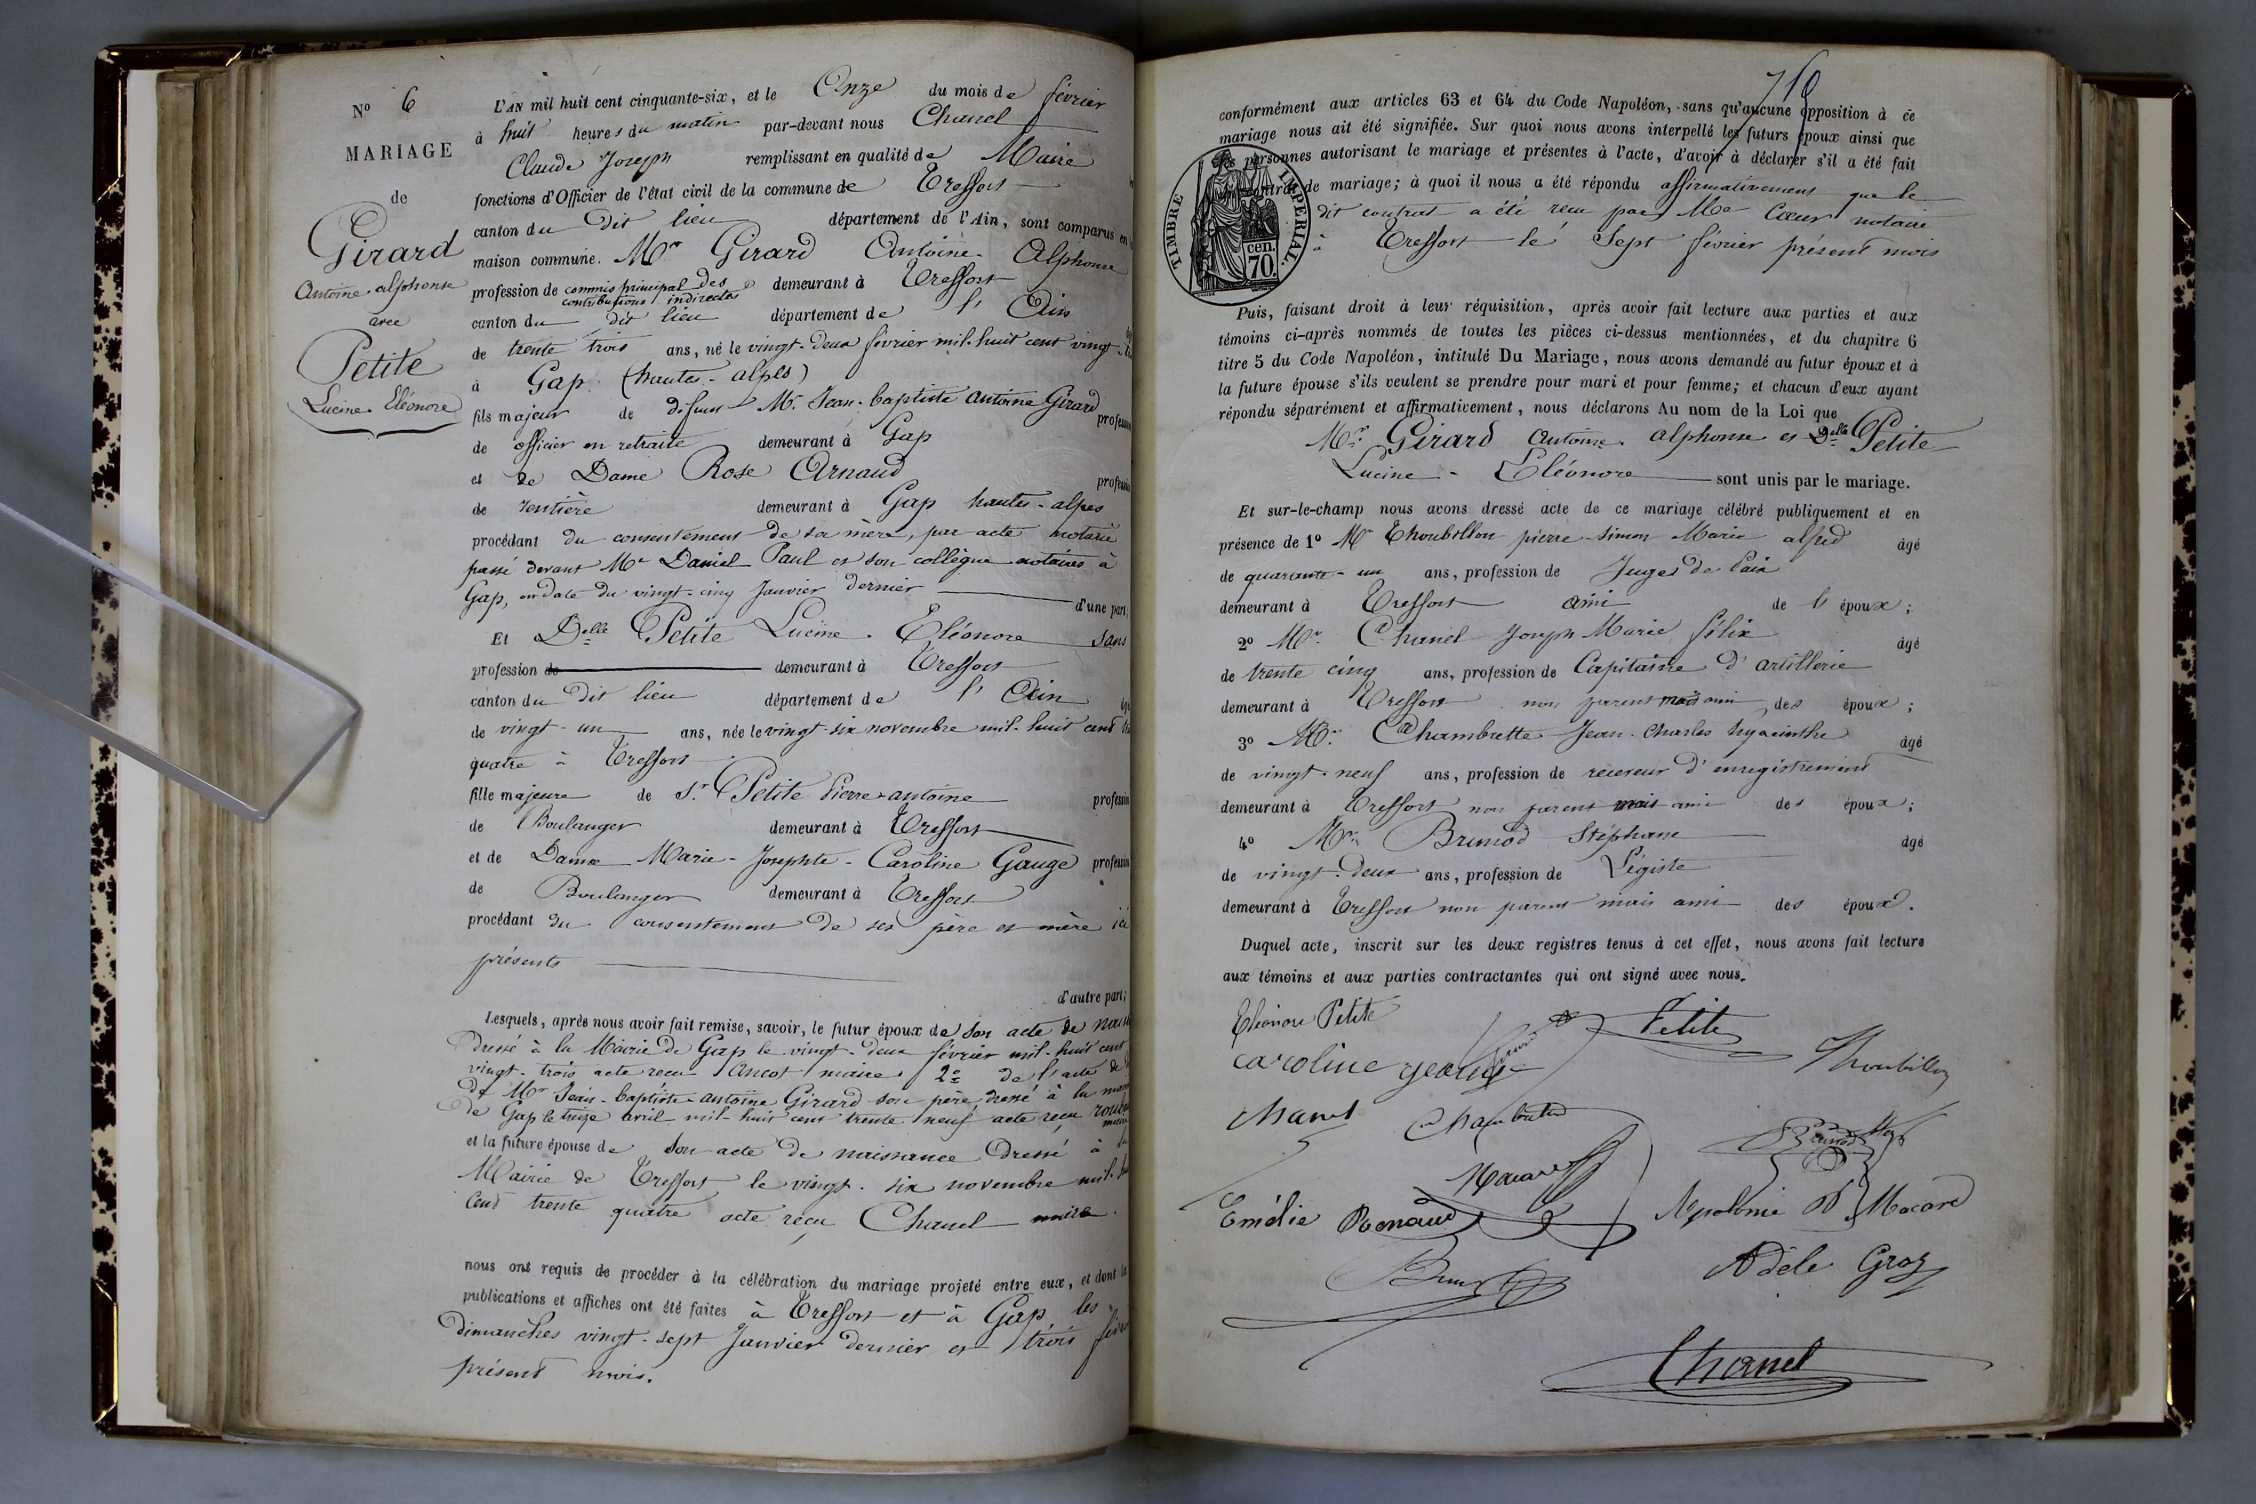 Nº 6
MARIAGE
de
Girard
Antoine alphonse
avec
Petite
Lucine Eléonore
L'AN mil huit cent cinquante-six, et le Onze du mois de février
à huit heures du matin par-devant nous Chanel
Claude Joseph remplissant en qualité de Maire
fonctions d'Officier de l'état civil de la commune de Treffort
canton du dit lieu département de l'Ain, sont comparus en
maison commune. Mr Girard Antoine Alphonse
profession de commis principal des contributions indirectes demeurant à Treffort
canton du dit lieu département de l' Ain
de trente trois ans, né le vingt-deux février mil-huit cent vingt
à Gap (hautes-alpes)
fils majeur de defunt Mr. Jean-baptiste antoine Girard profession
de officier en retraite demeurant à Gap
et de Dame Rose Arnaud profession
de rentière demeurant à Gap hautes-alpes
procédant du consentement de sa mère, par acte notarié
passé devant Me Daniel Paul et son collègue notaires à
Gap, en date du vingt-cinq Janvier dernier d'une part,
Et Delle Petite Lucine Eléonore sans
profession de demeurant à Treffort
canton du dit lieu département de l' Ain
de vingt-un ans, née le vingt-six novembre mil-huit cent
quatre à Treffort
fille majeure de Sr Petite Pierre-antoine profession
de Boulanger demeurant à Treffort
et de Dame Marie-Josephte-Caroline Gauge profession
de Boulanger demeurant à Treffort
procédant du consentement de ses père et mère ici
présents
d'autre part;
Lesquels, après nous avoir fait remise, savoir, le futur époux de son acte de
dressé à la Mairie de Gap le vingt-deux février mil-huit cent
vingt-trois acte recu Ancot maire 2º de l'acte de
de Mr Jean-baptiste-antoine Girard son père dressé à la
de Gap le treize avril mil-huit cent trente neuf acte reçu
et la future épouse de son acte de naissance dressé à la
Mairie de Treffort le vingt-six novembre mil
cent trente quatre acte reçu Chanel maire.
nous ont requis de procéder à la célébration du mariage projeté entre eux, et dont la
publications et affiches ont été faites à Treffort et à Gap les
dimanches vingt-sept Janvier dernier et trois
présent mois.
conformément aux articles 63 et 64 du Code Napoléon, sans qu'aucune opposition à ce
mariage nous ait été signifiée. Sur quoi nous avons interpellé les futurs époux ainsi que
les personnes autorisant le mariage et présentes à l'acte, d'avoir à déclarer s'il a été fait
contrat de mariage; à quoi il nous a été répondu affirmativement que le
dit contrat a été recu par Me Cœur notaire
à Treffort le Sept février présent mois
TIMBRE IMPERIAL.
cen.
70.
Puis, faisant droit à leur réquisition, après avoir fait lecture aux parties et aux
témoins ci-après nommés de toutes les pièces ci-dessus mentionnées, et du chapitre 6
titre 5 du Code Napoléon, intitulé Du Mariage, nous avons demandé au futur époux et à
la future épouse s'ils veulent se prendre pour mari et pour femme; et chacun d'eux ayant
répondu séparément et affirmativement, nous déclarons Au nom de la Loi que
Mr. Girard Antoine alphonse et Delle Petite
Lucine - Eléonore sont unis par le mariage.
Et sur-le-champ nous avons dressé acte de ce mariage célébré publiquement et en
présence de 1º Mr Thoubillon pierre Simon Marie alfred âgé
de quarante-un ans, profession de Juge de Paix
demeurant à Treffort ami de l' époux;
2º Mr. Chanel Joseph Marie félix âgé
de trente cinq ans, profession de Capitaine d'artillerie
demeurant à Treffort non parent mais ami des époux;
3º Mr. Chambrette Jean-Charles hyacinthe âgé
de vingt-neuf ans, profession de receveur d'enregistrement
demeurant à Treffort non parent mais ami des époux;
4º Mr. Brunod Stéphane âgé
de vingt-deux ans, profession de Légiste
demeurant à Treffort non parent mais ami des époux.
Duquel acte, inscrit sur les deux registres tenus à cet effet, nous avons fait lecture
aux témoins et aux parties contractantes qui ont signé avec nous.
Eléonore Petite
Petite
caroline
Thoubillon
Chanel
Emélie Renaud
Macard
Adèle Groz
Chanel